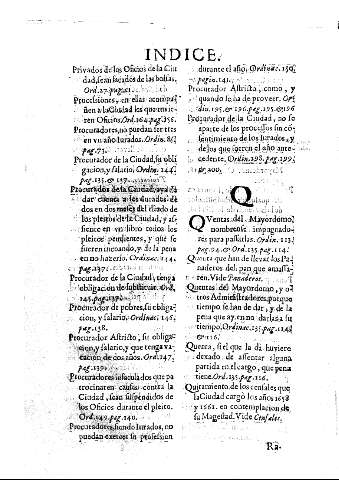 INDICE.
Privados de los Oficios de la Ciudad, sean sacados de las bolsas,
Ord. 27. pag. 21.
Procesiones, en ellas acompañen a la Ciudad los que tuvieren Oficios, Ord. 164. pag. 156.
Procuradores, no puedan ser tres
en vn año Iurados. Ordin. 86.
pag. 73.
Procurador de la Ciudad, su obligacion, y salario, Ordin. 144.
pag. 135. &
Procurador de la Ciudad, aya de
dar cuenta a los Iurados de
dos en dos meses del estado de
los pleytos de la Ciudad, y assiente en vn libro todos los
pleytos pendientes, y que se
fueren
en no hazerlo. Ordinac. 144.
pag. 137.
Procurador de la Ciudad, tenga
obligacion de substituir. Ord.
145. pag. 137.
Procurador de pobres, su obligacion, y salario, Ordinac. 146.
pag. 138.
Procurador Astricta, su obligacion, y salario, y que tenga vacacion de dos años. Ord. 147.
pag. 139.
Procuradores insaculados que patrocinaren causas contra la
Ciudad, sean suspendidos de
los Oficios durante el pleito.
Ord. 149. pag. 140.
Procuradores, siendo Iurados, no
puedan exercer su profession
durante el año, Ordinac. 150.
pagin. 141.
Procurador Astricta, como, y
quando se ha de proveer. Ordin. 195. & 196. pag. 195. & 196
Procurador de la Ciudad, no se
aparte de los processos sin consentimiento de los Iurados, y
de los que fueron el año antecedente, Ordin. 198. pag. 199.
& 200.
Q
Quentas del Mayordomo,
nombrense impugnadores para passarlas. Ordin. 113.
pag. 94. & Ord. 135. pag. 114.
Quenta que han de llevar los Panaderos del pan que amassaren. Vide Panaderos.
Quentas del Mayordomo, y otros Administradores, porque
tiempo se han de dar, y de la
pena que ay no darlas a su
tiempo, Ordinac. 135. pag. 114.
& 116.
Quenta, si el que la dà huviere
dexado de assentar alguna
partida en el cargo, que pena
tiene. Ord. 135. pag. 116.
Quitamiento de los censales que
la Ciudad cargò los años 1658
y 1661. en contemplacion de
su Magestad. Vide Censales.
Ra-